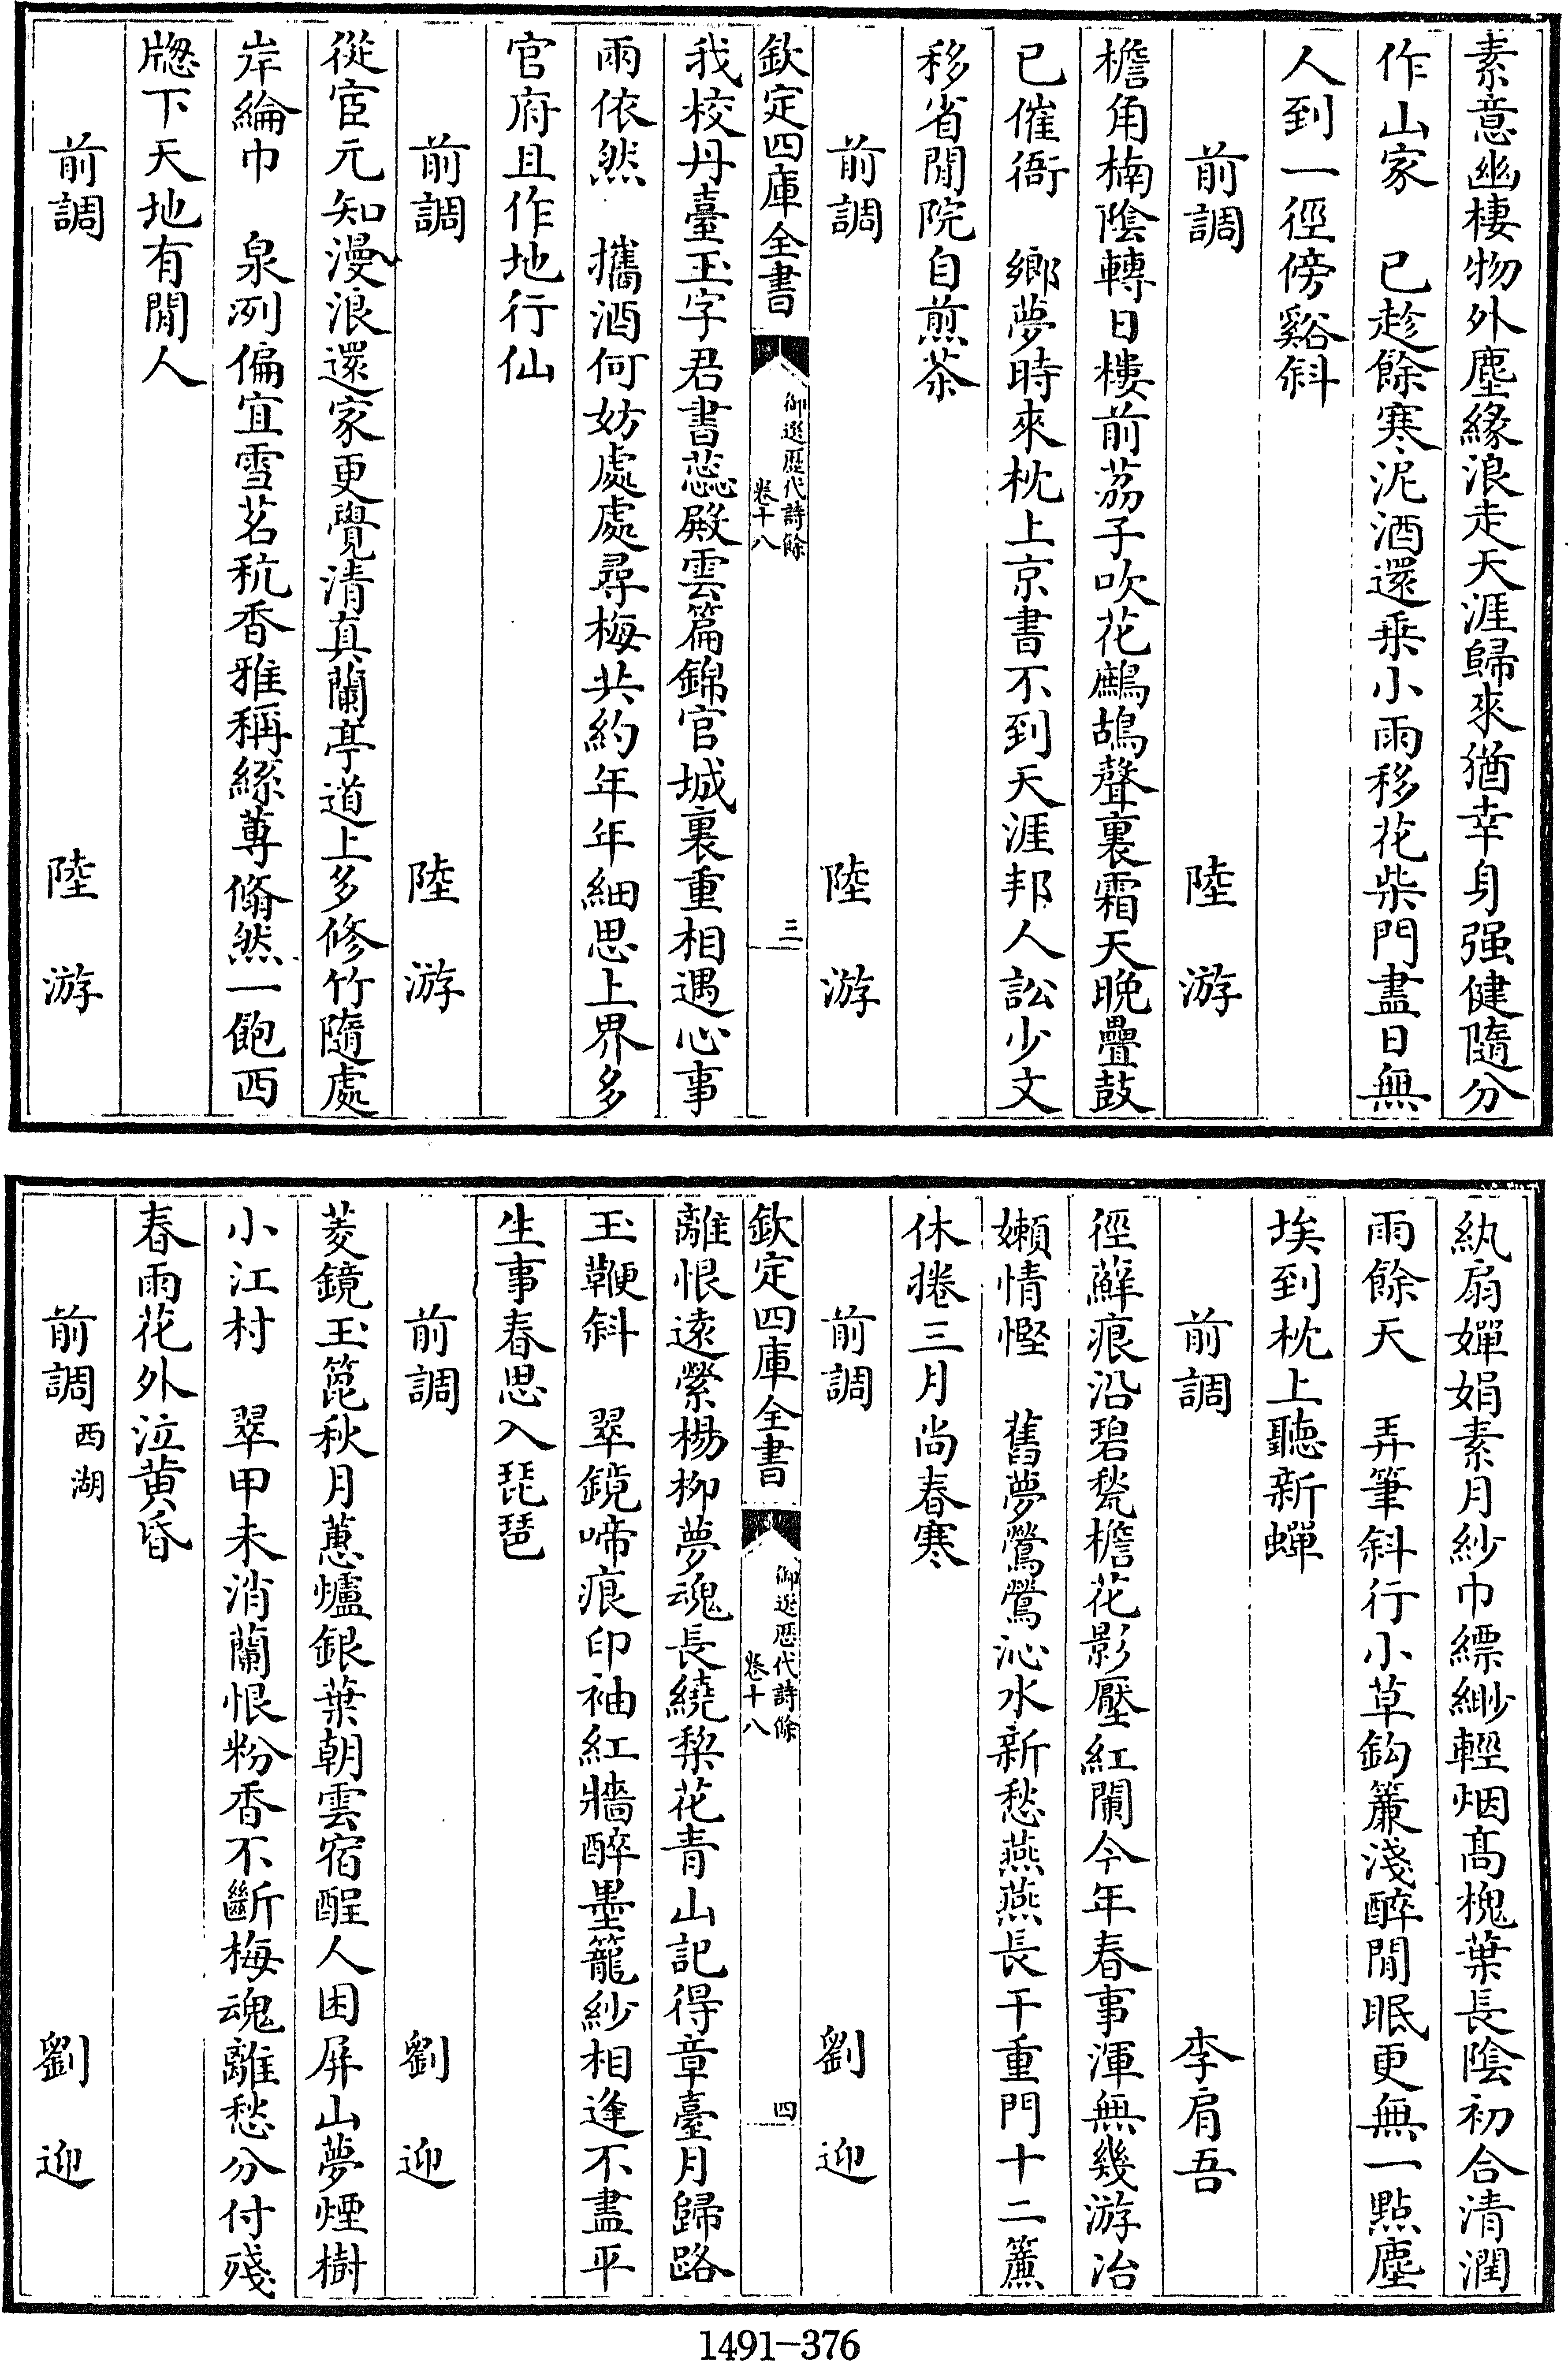 素意幽棲物外塵緣浪走天涯歸來猶幸身强健隨分
作山家　已趁餘寒泥酒還乗小雨移花柴門盡日無
人到一徑傍谿斜
前調　陸游
檐角楠陰轉日樓前荔子吹花鷓鴣聲裏霜天晚疊鼓
已催衙　鄉夢時來枕上京書不到天涯邦人訟少文
移省閒院自煎茶
前調　陸游
欽定四庫全書　御選歷代詩餘　卷十八　三
我校丹臺玉字君書蕊殿雲篇錦官城裏重相遇心事
兩依然　攜酒何妨處處尋梅共約年年細思上界多
官府且作地行仙
前調　陸游
從宦元知漫浪還家更覺清真蘭亭道上多修竹隨處
岸綸巾　泉洌偏宜雪茗秔香雅稱絲蓴翛然一飽西
牕下天地有閒人
前調　陸游
紈扇嬋娟素月紗巾縹緲輕烟高槐葉長陰初合清潤
雨餘天　弄筆斜行小草鈎簾淺醉閒眠更無一點塵
埃到枕上聽新蟬
前調　李肩吾
徑蘚痕沿碧甃檐花影壓紅闌今年春事渾無幾游冶
嬾情慳　舊夢鶯鶯沁水新愁燕燕長干重門十二簾
休捲三月尚春寒
前調　劉迎
欽定四庫全書　御選歷代詩餘　卷十八　四
離恨遠縈楊柳夢魂長繞棃花青山記得章臺月歸路
玉鞭斜　翠鏡啼痕印袖紅牆醉墨籠紗相逢不盡平
生事春思入琵琶
前調　劉迎
菱鏡玉箆秋月蕙爐銀葉朝雲宿酲人困屏山夢煙樹
小江村　翠甲未消蘭恨粉香不斷梅魂離愁分付殘
春雨花外泣黄昏
前調　西湖　劉迎
1491-376